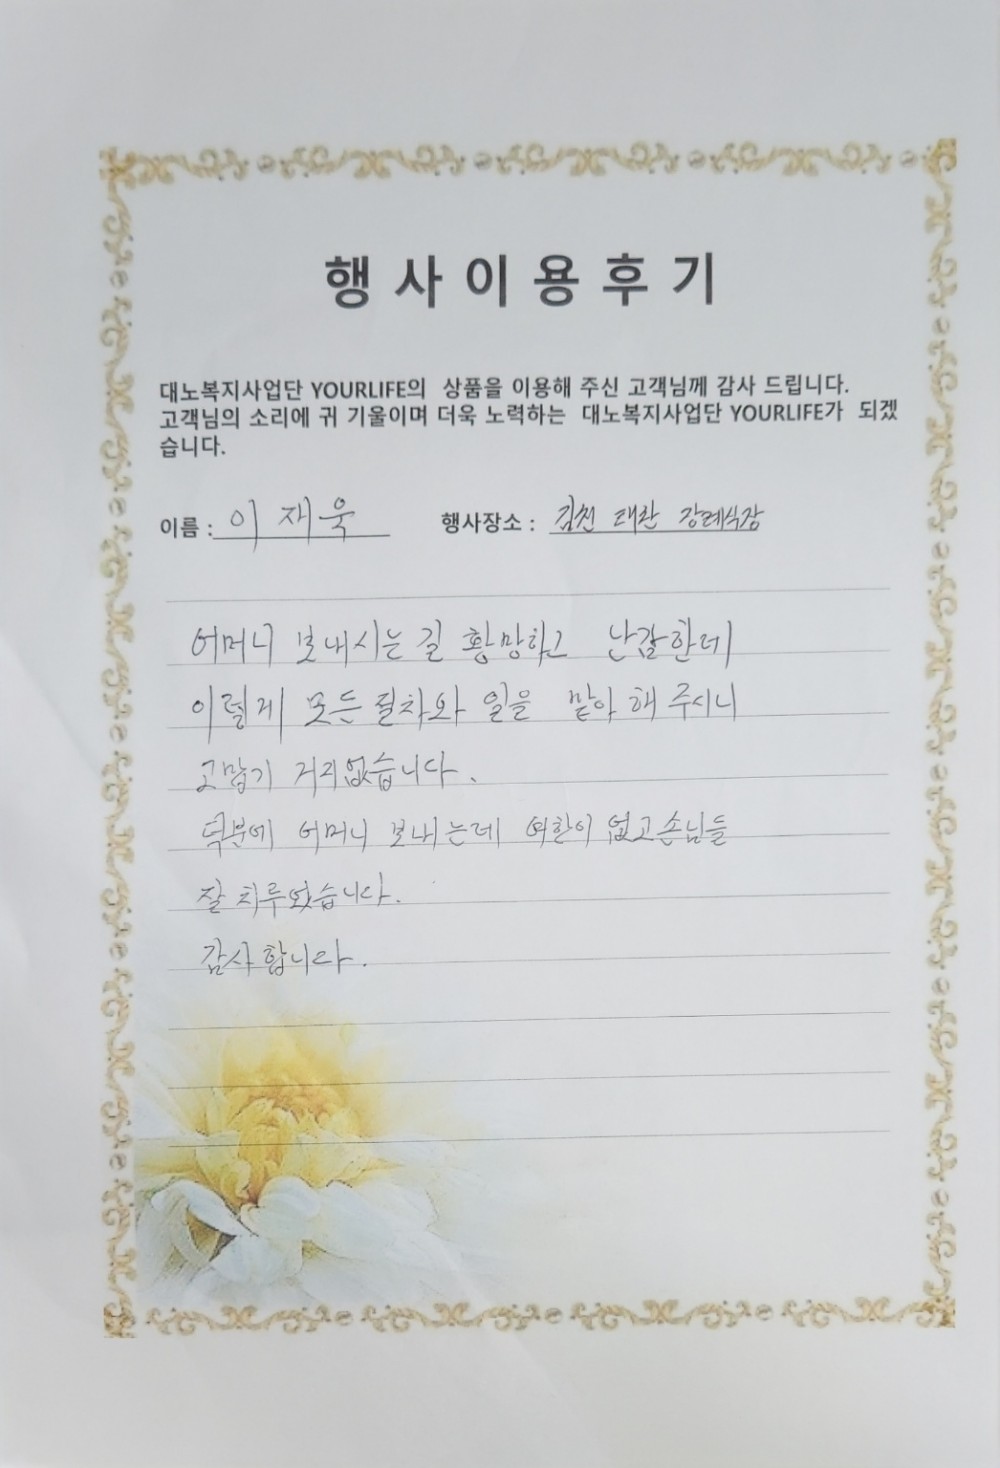 행사이용후기
대노복지사업단 YOURLIFE의 상품을 이용해 주신 고객님께 감사 드립니다.
고객님의 소리에 귀 기울이며 더욱 노력하는 대노복지사업단 YOURLIFE가 되겠
습니다.
이름 : 이재욱 행사장소 : 김천 장례식장
어머니 보내시는 길 황망하고 난감한데
이렇게 모든 절차와 일을 맡아 해 주시니
고맙기 거리없습니다.
덕분에 어머니 보내는데 여한이 없고 손님들
잘 치루었습니다.
감사합니다.